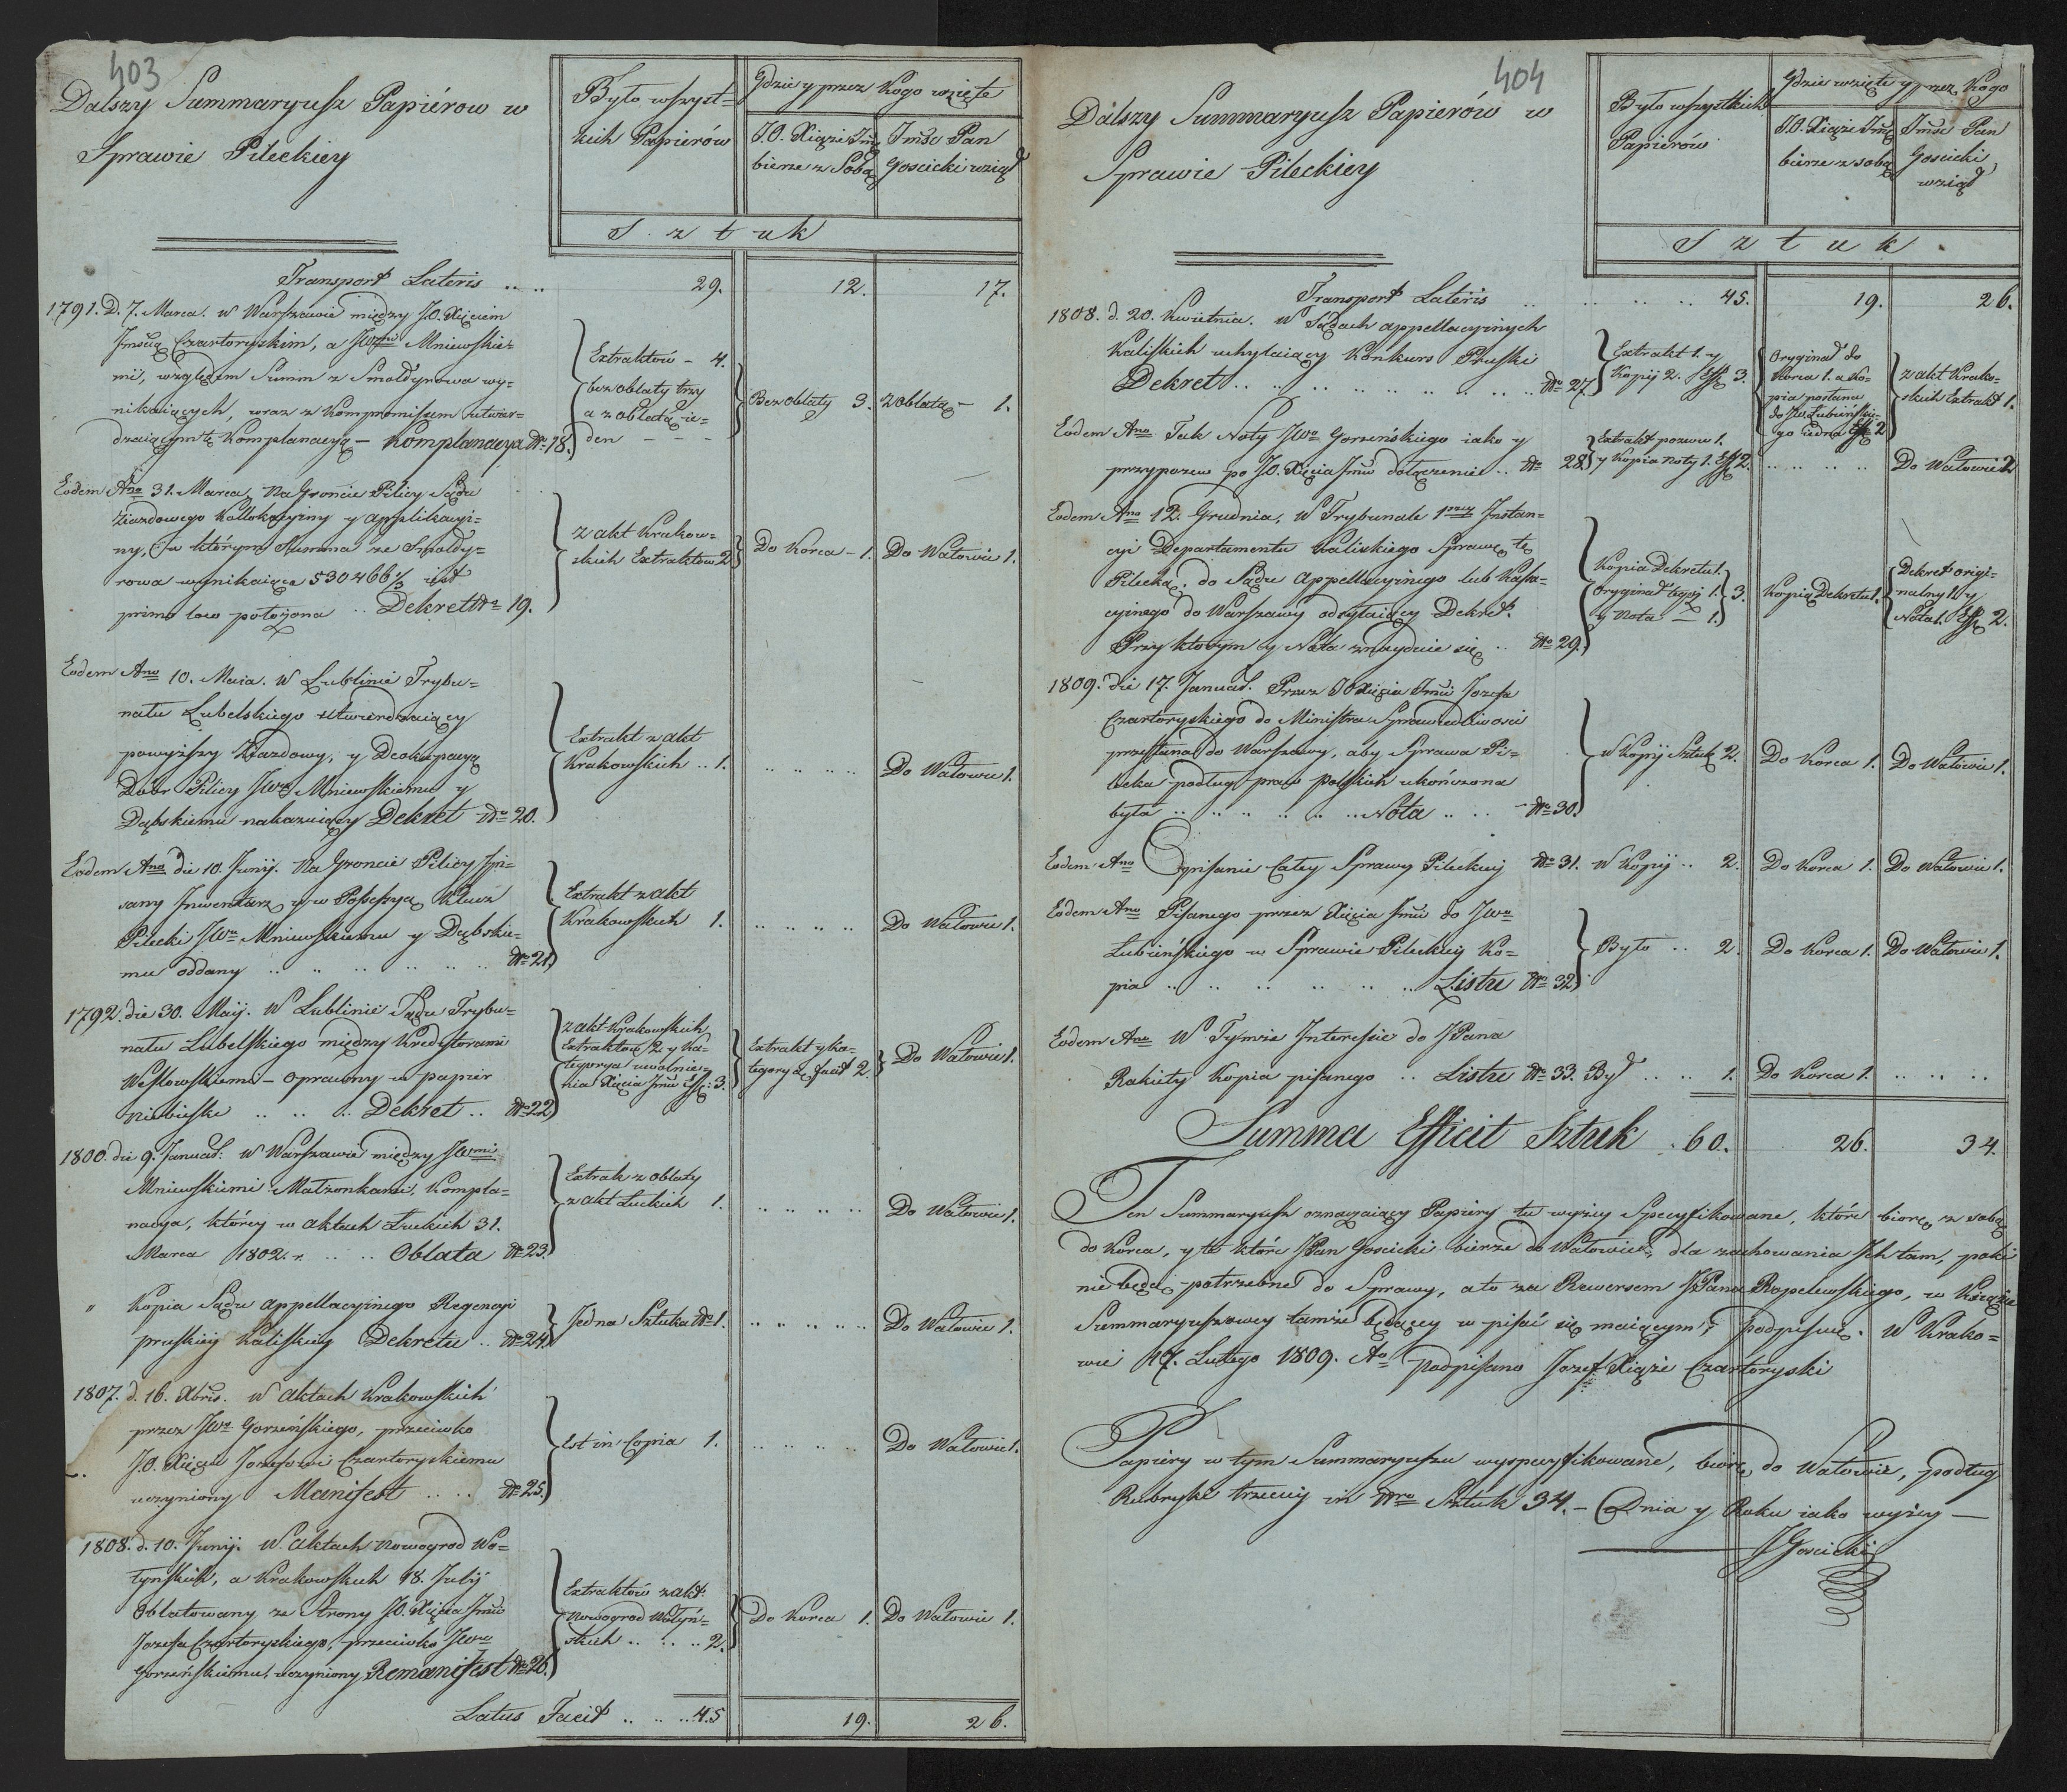 403
Dalszy Summaryusz Papiérow w
Sprawie Pileckiey
Było wszyst=
kich Papiérów
Gdzie y przez Kogo wzięte
J.O. Xiąże Jmć
bierze z Sobą
Jmść Pan
Gościcki wziął
S z t u k
Transport Lateris .. .. 29. 12. 17.
1791. D. 7. Marca. w Warszawie między J.O. Xięciem
Jmścią Czartoryskim, a JWmi Mniewskie=
mi, względem Summ z Smołdyrowa wy=
nikaiących, wraz z Kompromissem utwier=
dzaiącym tę Komplanacyą – Komplanacya No 18.
Extraktów – 4.
bez oblaty trzy
a z oblatą ie=
den – – –
Bez oblaty 3. z oblatą – 1.
Eodem Ano 31. Marca, Na Groncie Pilicy Sądu
Ziazdowego Kollokacyiny y applikacyi=
ny, w którym Summa ze Smołdy=
rowa wynikaiąca 530466⅓ iest
primo loco położona .. Dekret No 19.
z akt Krakow=
skich Extraktow 2.
Do Korca – 1. Do Watowic 1.
Eodem Ano 10. Maia. w Lublinie Trybu=
nału Lubelskiego utwierdzaiący
powyższy Ziazdowy, y Deokupacyą
Dóbr Pilicy JWo Mniewskiemu y
Dąbskiemu nakazuiący Dekret No 20.
Extrakt z akt
Krakowskich .. 1.
.. .. .. .. Do Watowic 1.
Eodem Ano die 10. Junij. Na Groncie Pilicy Spi=
sany Inwentarz y w Possessyą Klucz
Pilecki JWo Mniewskiemu y Dąbskie=
mu oddany .. .. .. .. .. .. No 21.
Extrakt z akt
Krakowskich 1.
.. .. .. .. Do Watowic 1.
1792. die 30. Maij. W Lublinie Sądu Trybu=
nału Lubelskiego między Kredytorami
Wesłowskiemi – oprawny w papier
niebieski .. .. .. Dekret .. No 22.
z akt Krakowskich
Extraktow 2. y Ka=
tegorya uwolnie=
nia Xięcia Jmć Effę: 3.
Extrakt y Ka=
tegoryą facit 2.
Do Watowic 1.
1800. die 9. Januar: w Warszawie między JWmi
Mniewskiemi Małżonkami, Kompla=
nacya, którey w aktach Łuckich 31.
Marca 1802. r. .. .. Oblata No 23.
Extrak z oblaty
z akt Łuckich 1.
.. .. .. .. .. Do Watowic 1.
" Kopia Sądu appellacyinego Regencyi
pruskiey Kaliskiey Dekretu .. No 24.
Jedna Sztuka No 1.
.. .. .. .. .. Do Watowic 1.
1807. d. 16. Xbris. w Aktach Krakowskich
przez JWo Gorzeńskiego, przeciwko
J.O. Xięciu Jozefowi Czartoryskiemu
uczyniony Manifest .. .. No 25.
Est in Copia 1.
.. .. .. .. Do Watowic 1.
1808. d. 10. Junij. w Aktach Nowogrod Wo=
łyńskich, a Krakowskich 18. Julij
Oblatowany ze Strony J.O. Xięcia Jmć
Jozefa Czartoryskiego, przeciwko JWmu
Gorzeńskiemu, uczyniony Remanifest No 26.
Extraktów z akt
Nowogrod Wołyń=
skich .. .. .. 2.
Do Korca 1. Do Watowic 1.
Latus Facit .. .. .. 45 19. 26.
404
Dalszy Summaryusz Papierów w
Sprawie Pileckiey
Było wszystkich
Papiérów
Gdzie wzięte y przez Kogo
J.O. Xiąże Jmć
bierze z sobą
Jmść Pan
Goscicki
wziął
S z t u k .
Transport Lateris .. .. .. .. 45. 19. 26.
1808. d. 20. Kwietnia. w Sądach appellacyinych
Kaliskich uchylaiący Konkurs Pruski
Dekret .. .. .. .. .. .. .. No 27.
Extrakt 1. y
Kopij 2. Effę 3.
Oryginał do
Korca 1. a Ko=
pia posłana
do JW. Lubieński=
go iedna Effę 2
z akt Krako=
skich Extrakt 1.
Eodem Ano Tak Noty JWo Gorzeńskiego iako y
przypozew po J.O. Xięcia Jmć dołączenie .. No 28.
Extrakt pozwu 1.
y Kopia noty 1. Effę 2.
.. .. .. .. Do Watowic 2
Eodem Ano 12. Grudnia, w Trybunale 1szey Instan=
cyi Departamentu Kaliskiego Sprawę tę
Pilecką, do Sądu Appellacyinego lub Kassa=
cyinego do Warszawy odsyłaiący Dekret.
Przy którym y Nota znayduie się .. No 29.
Kopia Dekretu 1.
Oryginał tegoż 1.
y Nota – 1.
3.
Kopia Dekretu 1.
Dekret origi=
nalny 1. y
Nota 1. Effę 2.
1809. die 17. Januar. Przez JO Xięcia Jmci Jozefa
Czartoryskiego do Ministra Sprawiedliwości
przesłana do Warszawy, aby Sprawa Pi=
lecka podług praw polskich ukończona
była .. .. .. .. .. .. Nota .. .. No 30.
w Kopij Sztuk 2.
Do Korca 1. Do Watowic 1.
Eodem Ano Opisanie Całey Sprawy Pileckiey No 31. w Kopij .. 2. Do Korca 1. Do Watowic 1.
Eodem Ano Pisanego przez Xięcia Jmć do JWo
Lubieńskiego w Sprawie Pileckiey Ko=
pia .. .. .. .. .. .. Listu No 32.
Było .. 2.
Do Korca 1. Do Watowic 1.
Eodem Ano W Tymże Interessie do JPana
Rakiety Kopia pisanego .. Listu No 33. Był .. .. 1. Do Korca 1. .. .. ..
Summa Efficit Sztuk . 60. 26. 34.
Ten Summaryusz oznaczaiący Papiéry tu wyżey Specyfikowane, które biorę z sobą
do Korca, y te które JPan Goscicki bierze do Watowic, dla zachowania Ich tam, poki
nie będą potrzebne do Sprawy, a to za Rewersem JPana Ropelewskiego, w Xiędze
Summaryuszowey tamże będącey w pisać się maiącym; podpisuię. w Krako=
wie 17. Lutego 1809. Ao podpisano Jozef Xiąże Czartoryski
Papiéry w tym Summaryuszu wyspecyfikowane, biorę do Watowic, podług
Rubryki trzeciey in Nro Sztuk 34. – Dnia y Roku iako wyżey –
JGoscicki